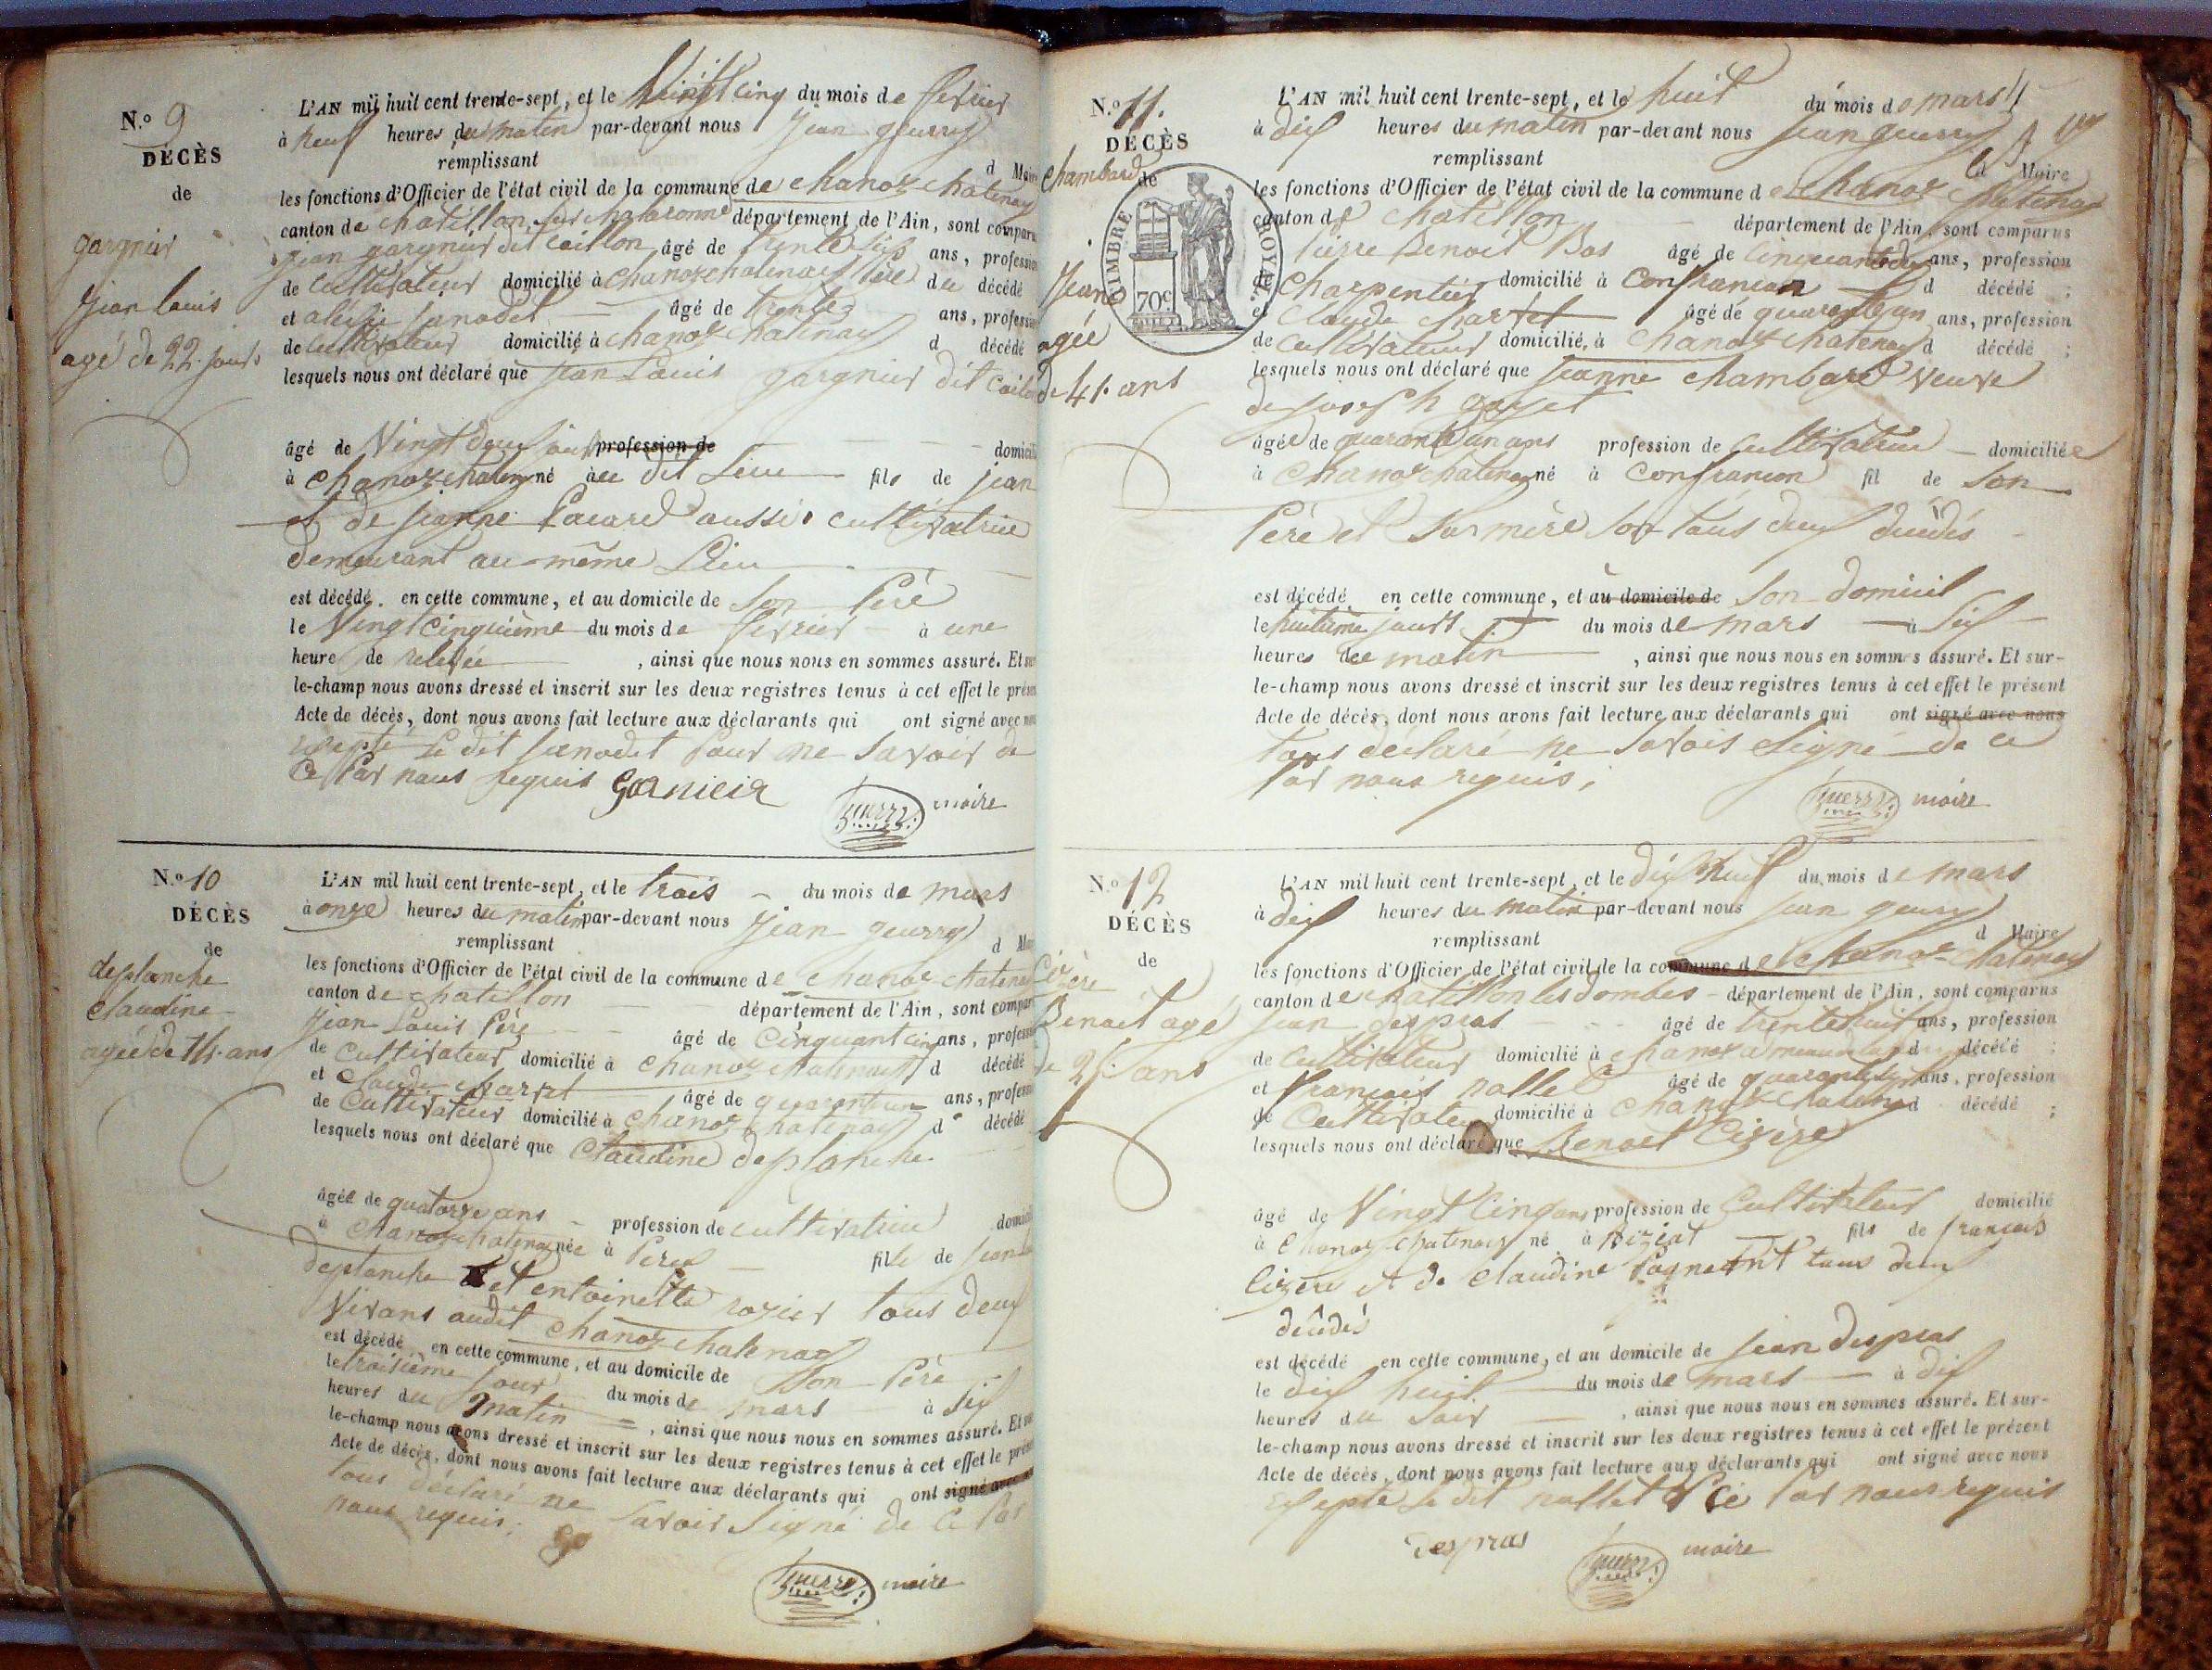 N.o 9
DÉCÈS
de
gargnier
Jean louis
agé de 22 jours
L'AN mil huit cent trente-sept, et le Vingt cinq du mois de fevrier
à neuf heures du matin par-devant nous Jean guerry
remplissant d Maire
les fonctions d'Officier de l'état civil de la commune de chanoz chatenay
canton de chatillon sur chalaronne département de l'Ain, sont comparus
Jean gargnier dit Caillon âgé de trente six ans, profession
de Cultivateur domicilié à chanoz chatenay Père du décédé
et Janodet âgé de trente ans, profession
de Cultivateur domicilié à chanoz chatenay d décédé
lesquels nous ont déclaré que Jean Louis gargnier dit Caillon
âgé de Vingt deux jours profession de domicilié
à chanoz chatenay né au dit Lieu fils de jean
et de jeanne Pacard aussi cultivatrice
demeurant au même Lieu
est décédé en cette commune, et au domicile de son Père
le Vingt cinquième du mois de fevrier à une
heure de relevée , ainsi que nous nous en sommes assuré. Et sur-
le-champ nous avons dressé et inscrit sur les deux registres tenus à cet effet le présent
Acte de décès, dont nous avons fait lecture aux déclarants qui ont signé avec nous
excepté Le dit Janodet Pour ne Savoir de
Ce Par nous requis Garnieir
guerry maire
N.o 10
DÉCÈS
de
deplanche
Claudine
agée de 14 ans
L'AN mil huit cent trente-sept, et le trois du mois de mars
à onze heures du matin par-devant nous Jean guerry
remplissant d Maire
les fonctions d'Officier de l'état civil de la commune de chanoz chatenay
canton de chatillon département de l'Ain, sont comparus
Jean Louis Père âgé de Cinquant cinq ans, profession
de Cultivateur domicilié à chanoz chatenay d décédé
et Claude charvet âgé de quarant un ans, profession
de Cultivateur domicilié à chanoz chatenay d décédé
lesquels nous ont déclaré que Claudine deplanche
âgée de quatorze ans profession de cultivatrice domiciliée
à Chanoz chatenay née à Perex fille de Jean Louis
deplanche et entoinette rozier tous deux
Vivans audit chanoz chatenay
est décédé en cette commune, et au domicile de Son Père
le troisième jour du mois de mars à Six
heures du matin , ainsi que nous nous en sommes assuré. Et sur-
le-champ nous avons dressé et inscrit sur les deux registres tenus à cet effet le présent
Acte de décès, dont nous avons fait lecture aux déclarants qui ont signé avec nous
tous déclaré ne Savoir Signé de Ce Par
nous requis.
guerry maire
N.o 11.
DÉCÈS
de
Chambard
Jeanne
agée
de 41 ans
TIMBRE ROYAL
70c
L'AN mil huit cent trente-sept, et le huit du mois de mars
à dix heures du matin par-devant nous Jean guerry
remplissant d Maire
les fonctions d'Officier de l'état civil de la commune de chanoz chatenay
canton de chatillon département de l'Ain, sont comparus
Pierre Benoit Bas âgé de Cinquante deux ans, profession
de Charpentier domicilié à Confrancon d décédé ;
et Claude charvet âgé de quarante un ans, profession
de Cultivateur domicilié à Chanoz chatenay d décédé ;
lesquels nous ont déclaré que Jeanne chambard Veuve
de joseph
âgée de quarante un ans profession de Cultivatrice domiciliée
à Chanoz chatenay né à Confrancon fil de Son
Père et Sas mère Son tous deux décédés
est décédé en cette commune, et au domicile de Son domicil
le huitième jours du mois de mars à Six
heures du matin , ainsi que nous nous en sommes assuré. Et sur-
le-champ nous avons dressé et inscrit sur les deux registres tenus à cet effet le présent
Acte de décès, dont nous avons fait lecture aux déclarants qui ont signé avec nous
tous déclaré ne Savois Signé de ce
Par nous requis.
guerry maire
N.o 12
DÉCÈS
de
Cizère
Benoit agé
de 25 ans
L'AN mil huit cent trente-sept, et le dix huit du mois de mars
à dix heures du matin par-devant nous Jean guerry
remplissant d Maire
les fonctions d'Officier de l'état civil de la commune de chanoz chatenay
canton de chatillon les dombes département de l'Ain, sont comparus
Jean despras âgé de trente huit ans, profession
de Cultivateur domicilié à chanoz d décédé ;
et François nallet âgé de ans, profession
de Cultivateur domicilié à chanoz chatenay d décédé ;
lesquels nous ont déclaré que Benoit Cizère
âgé de Vingt Cinq ans profession de Cultivateur domicilié
à Chanoz chatenay né à Viziat fils de francois
Cizère et de Claudine tous deux
décédés
est décédé en cette commune, et au domicile de Jean despras
le dix huit du mois de mars à dix
heures du Soir , ainsi que nous nous en sommes assuré. Et sur-
le-champ nous avons dressé et inscrit sur les deux registres tenus à cet effet le présent
Acte de décès, dont nous avons fait lecture aux déclarants qui ont signé avec nous
exepté Le dit nallet de Ce Par nous requis
Despras
guerry maire